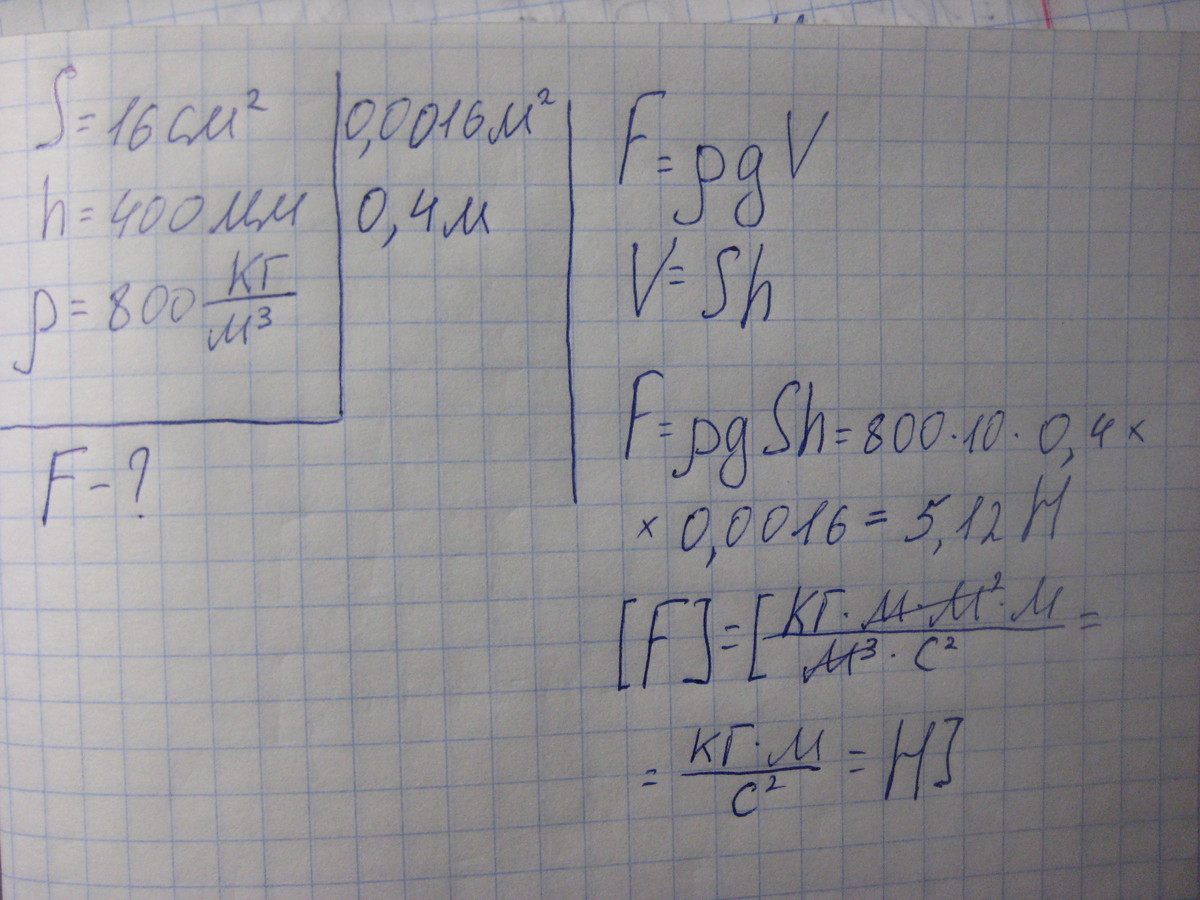 S = 16 см² | 0,0016 м²
h = 400 мм | 0,4 м
ρ = 800 кг/м³
F - ?
F = ρgV
V = Sh
F = ρgSh = 800 · 10 · 0,4 ×
× 0,0016 = 5,12 Н
[F] = [кг · м · м² · м / м³ · с² =
= кг · м / с² = Н]